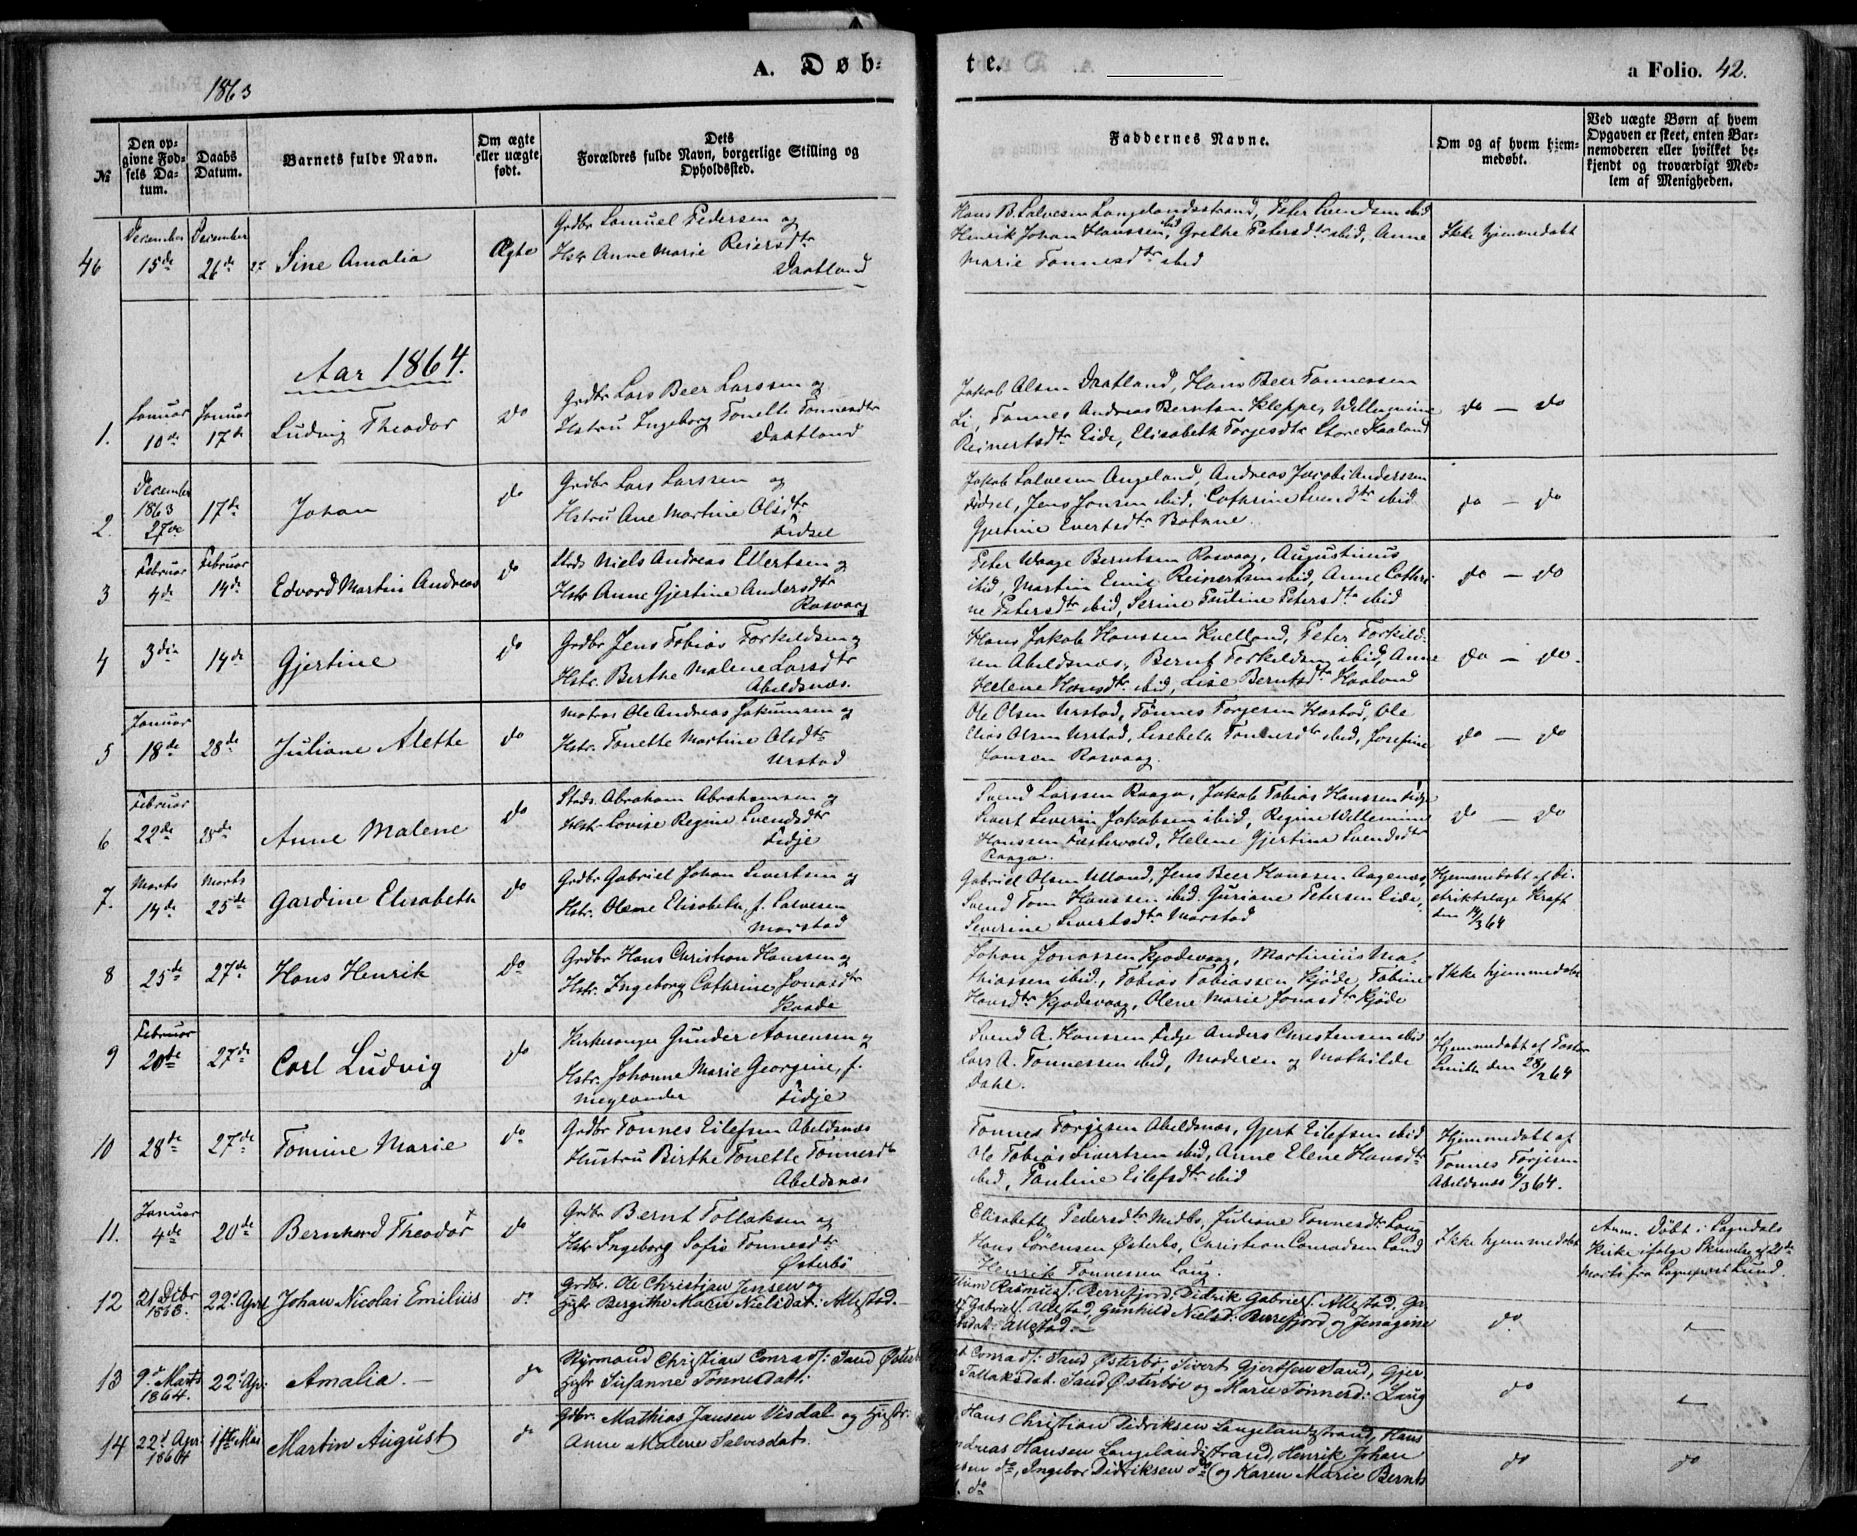 1863
A. Døb-
te.
a Folio. 42.
№
Den op-
givne Fød-
sels Da-
tum.
Daabs
Datum.
Barnets fulde Navn.
Om ægte
eller uægte
født.
Dets
Forældres fulde Navn, borgerlige Stilling og
Opholdssted.
Faddernes Navne.
Om og af hvem hjem-
medøbt.
Ved uægte Børn af hvem
Opgaven er skeet, enten Bar-
nemoderen eller hvilket be-
kjendt og troværdigt Med-
lem af Menigheden.
46
December
15de
December
26de
27
Sine Amalia
Ægte
Grdbr Samuel Pedersen og
Hstr Anne Marie Reiersdtr
Daatland
Hans B. Salvesen Langelandsstrand, Peter Svendsen ibid
Henrik Johan Hanssen ibid, Grethe Petersdtr ibid, Anne
Marie Tønnesdtr ibid
Ikke hjemmedøbt
Aar 1864.
1.
Januar
10de
Januar
17de
Ludvig Theodor
do
Grdbr Lars Beer Larssen og
Hstru Ingeborg Tonette Tønnesdtr
Daatland
Jakob Olsen Daatland, Hans Beer Tønnessen
Li, Tønnes Andreas Berntsen Kleppe, Willumine
Reinertsdtr Eide, Elisabeth Torjesdtr Store Haaland
do — do
2.
December
1863
27de
17de
Johan
do
Grdbr Lars Larssen og
Hstru Ane Martine Olsdtr
Fidsel
Jakob Salvesen Angeland, Andreas Jacobi Anderssen
Fidsel, Jens Jonsen ibid, Cathrine Svendsdtr ibid
Gjertine Evertsdtr Botnne.
do — do
3
Februar
4de
Februar
14de
Edvard Martin Andreas
do
Stds Niels Andreas Ellertsen og
Hstr Anne Gjertine Andersdtr
Rasvaag
Peter Waage Berntsen Rasvaag, Augustinus
ibid, Martin Emil Reinertsen ibid, Anne Cathri-
ne Petersdtr ibid, Serine Pauline Petersdtr ibid
do — do
4
3die
14de
Gjertine
do
Grdbr Jens Tobias Torkildsen og
Hstr. Berthe Malene Larsdtr
Abeldsnæs.
Hans Jakob Hanssen Kvelland, Peter Torkild-
sen Abeldsnæs, Bernt Torkildsen ibid, Anne
Helene Hansdtr ibid, Lise Berntsdtr Haaland
do — do.
5
Januar
18de
28de
Juliane Alette
do
Matros Ole Andreas Jakumsen og
Hstr. Tonette Martine Olsdtr
Urstad
Ole Olsen Urstad, Tønnes Torjesen Hastad, Ole
Elias Olsen Urstad, Lisebeth Tønnesdtr ibid, Josefine
Jansen Rasvaag.
do — do
6
Februar
22de
28de
Anne Malene
do
Stds. Abraham Abrahamsen og
Hstr Lovise Regine Svendsdtr
Fidje
Svend Larssen Raaga, Jakob Tobias Hanssen Fidje
Sivert Severin Jakobsen ibid, Regine Willemine
Hanssen Festervold, Helene Gjertine Svendsdtr
Raaga.
do — do
7.
Marts
14de
Marts
25de
Gardine Elisabeth
do
Grdbr Gabriel Johan Sivertsen og
Hstr. Olene Elisabeth, f. Salvesen
Morstad
Gabriel Olsen Ulland, Jens Beer Hanssen Aagenæs,
Svend Tom Hanssen ibid. Guriane Petersen Eide,
Severine Sivertsdtr Morstad
Hjemmedøbt af Di-
striktslæge Kraft
den 14/3 64
8
25de
27de
Hans Henrik
do
Grdbr Hans Christian Hanssen og
Hstr. Ingeborg Cathrine Jonasdtr
Kaade
Johan Jonassen Kjødevaag, Martinius Ma-
thiassen ibid., Tobias Tobiassen Kjøde, Tobine
Hansdtr Kjødevaag, Olene Marie Jonasdtr Kjøde
Ikke hjemmedøbt
9
Februar
20de
27de
Carl Ludvig
do
Kirkesanger Gunder Aanensen og
Hstr. Johanne Marie Georgine, f.
Meglander Fidje
Svend A. Hanssen Fidje Anders Christensen ibid
Lars A. Tønnessen ibid, Moderen og Mathilde
Dahl.
Hjemmedøbt af Pastor
Smith den 28/2 64
10
28de
27de
Tomine Marie
do
Grdbr Tønnes Eilefsen Abeldsnæs
Hustru Birthe Tonette Tønnesdtr
Abeldsnæs
Tønnes Torjesen Abeldsnæs, Gjert Eilefsen ibid
Ole Tobias Sivertsen ibid, Anne Elene Hansdtr
ibid, Pauline Eilefsdtr ibid
Hjemmedøbt af
Tønnes Torjesen
Abeldsnæs 6/3 64.
11.
Januar
4de
20de
Bernhard Theodor ×
do
Grdbr Bernt Tollaksen og
Hstr Ingeborg Sofie Tønnesdtr
Østerbø
Elisabeth Pedersdtr Midbø, Juliane Tønnesdtr Laug
Hans Sørensen Østerbø, Christian Conradsen Sand
Henrik Tønnessen Laug.
Ikke hjemmedøbt
Anm. Døbt i Sogndals
Kirke ifølge Skrivelse af 21de
Marts fra Sognepræst Lund.
12
21 Debr
1863.
22d April
Johan Nicolai Emilius
do
Grdbr. Ole Christjan Jensen og
Hustr Bergithe Marie Nielsdat: Allestad.
Rasmus s: Berrefjord, Didrik Gabriels: Allestad, Ga-
Gabriels: Allestad, Gunhild Nielsd: Berrefjord og Jenagine
Allestad.—
do
13
9d Marts
1864.
22d Apr
Amalia. —
do
Styrmand Christian Conrads: Sand Østerb
Hustr Susanne Tønnesdatt:
Conrads: Sand Østerbø, Sivert Gjertsen Sand, Gjer
Tollaksdat. Sand Østerbøe og Marie Tønnesd: Laug
do
14
22d Apr:
1864
1ste Mai
Martin August
do
Gdbr. Mathias Jansen Visdal og Hustr:
Anne Malene Salvesdat:
Hans Christian Didriksen Langelandsstrand, Hans
Andreas Hansen Langelandsstrand, Henrik Johan
do, Ingebor Didriksen do og Karen Marie Bernts
do
do
do